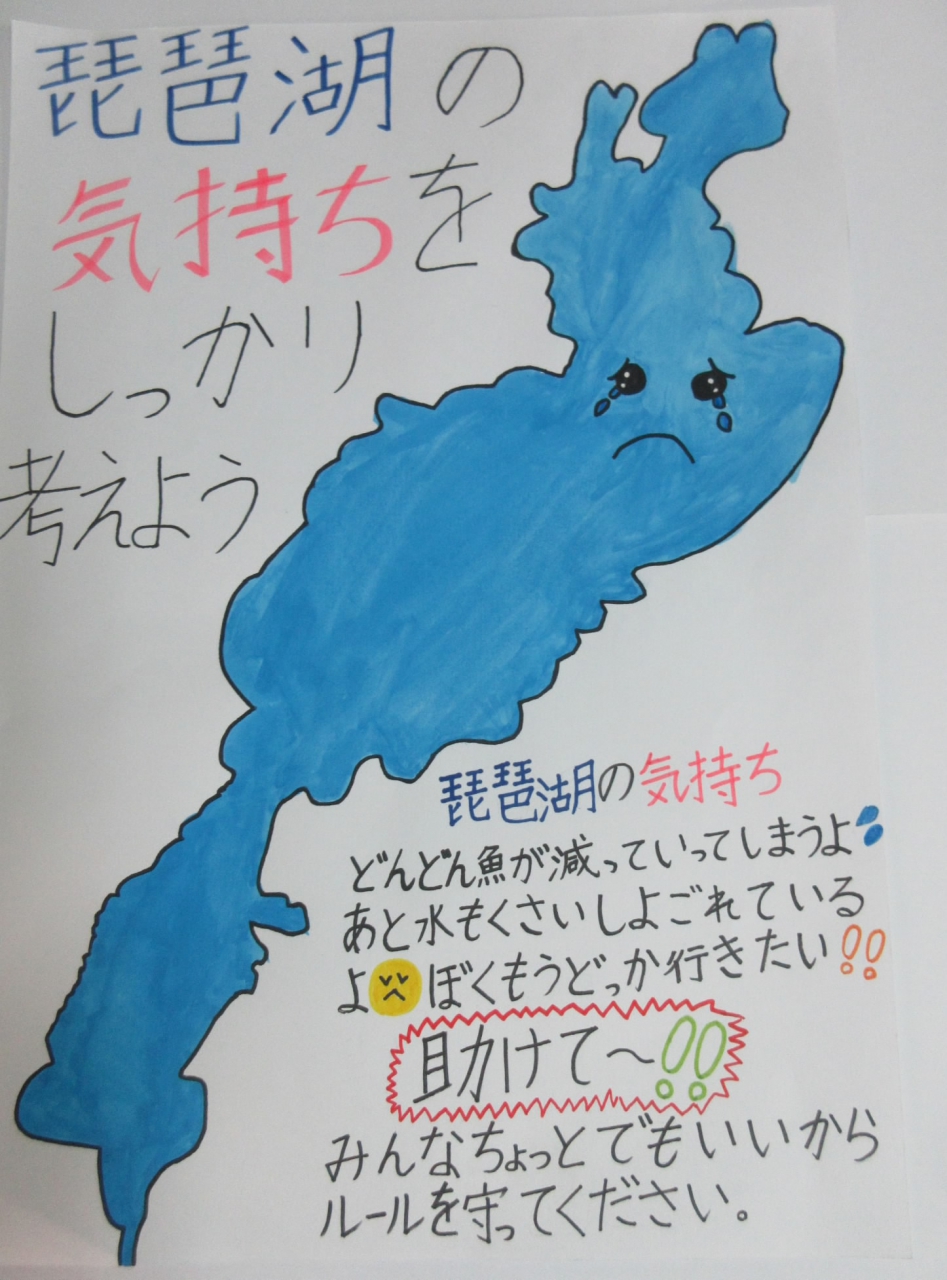 琵琶湖の
気持ちを
しっかり
考えよう
琵琶湖の気持ち
どんどん魚が減っていってしまうよ
あと水もくさいしよごれている
よ ぼくもうどっか行きたい!!
助けて〜!!
みんなちょっとでもいいから
ルールを守ってください。